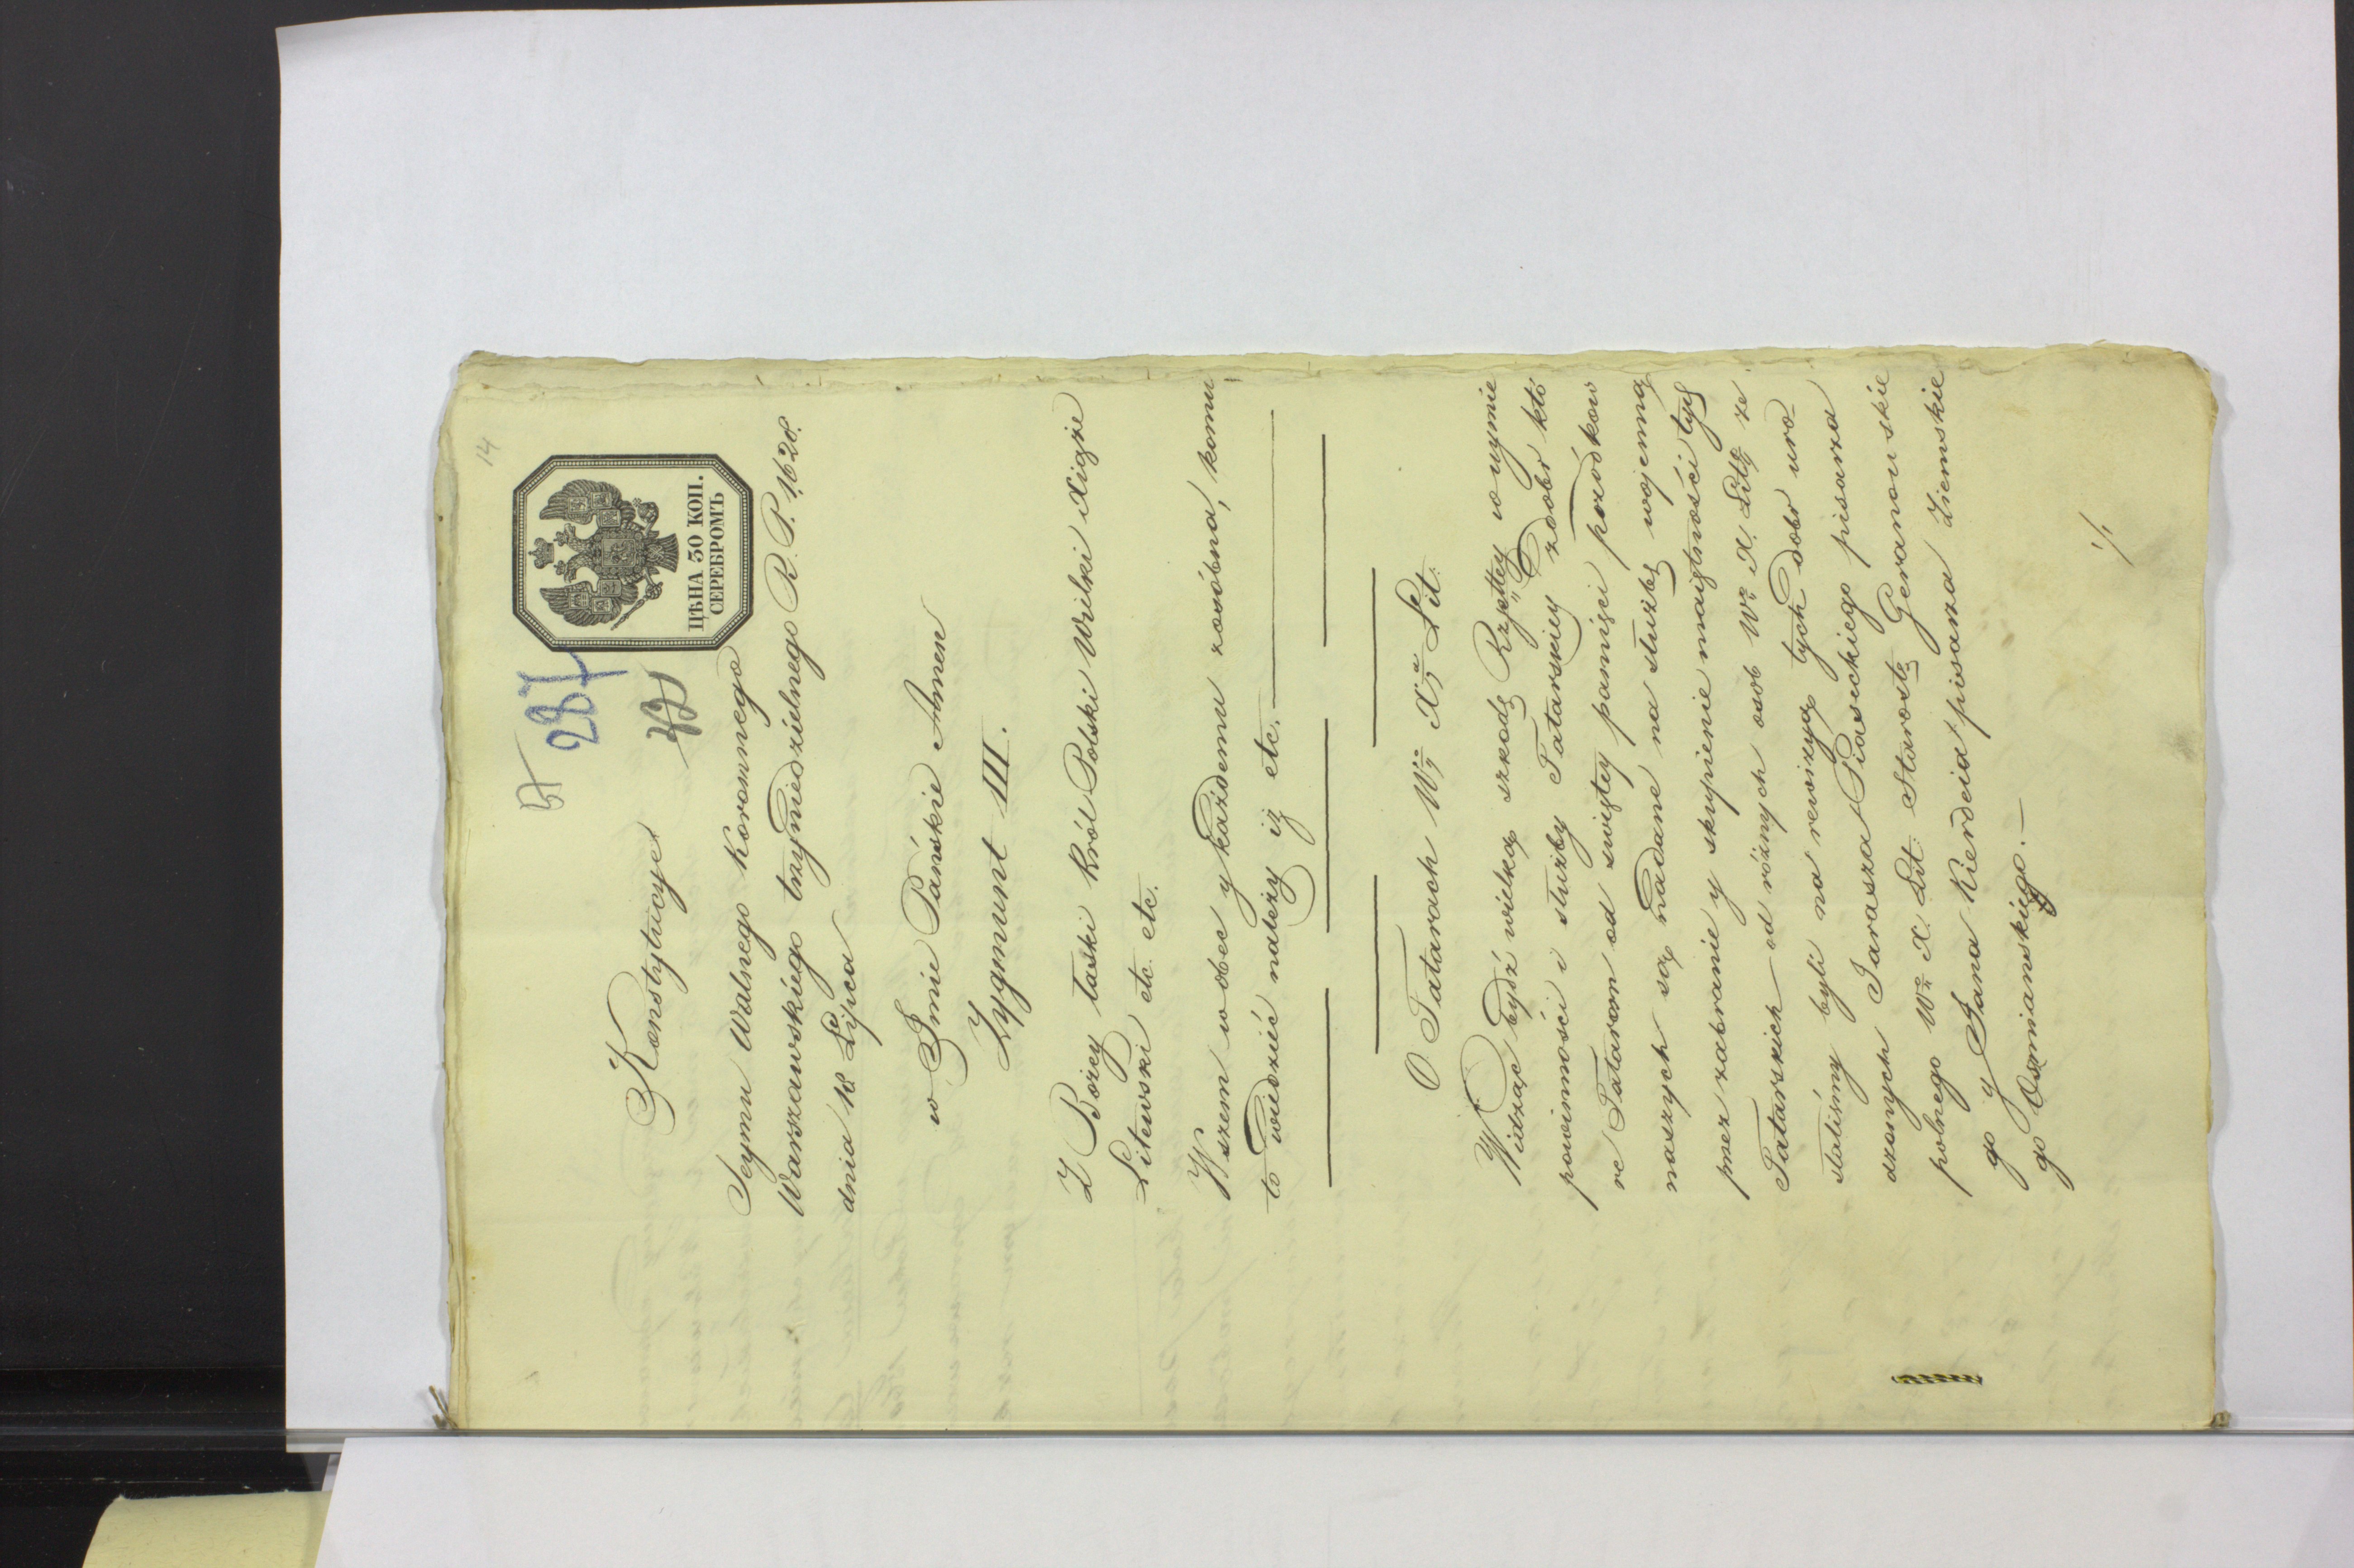 14
57
287
ЦѢНА 30 КОП.
СЕРЕБРОМЪ
Konstytucye
Seymu Walnego Koronnego
Warszawskiego trzyniedzielnego R. P. 1628.
dnia 18 Lipca
w Imie Pańskie Amen
Zygmunt III.
Z Bożey łaski Król Polski Wielki Xiąże
Litewski etc. etc.
Wszem wobec y każdemu zosóbna, komu
to wiedzieć należy iż etc.
O Tatarach Wgo Xa Lit.
Widząc bydź wielką szkodę Rzpltey w uymie
powinności i służby Tatarskiey z dobr któ
re Tatarom od swiętey pamięci przodków
naszych są nadane na służbę wojenną
przez zabranie y skupienie maiętności tych
Tatarskich od różnych osob Wo X. Litgo ze
słaliśmy byli na rewizyą tych dobr uro-
dzonych Jarasza Piaseckiego pisarza
polnego Wo X. Lit. Starostę Geranoiskie
go y Jana Kierdeia pisarza Ziemskie
go Oszmianskiego.—